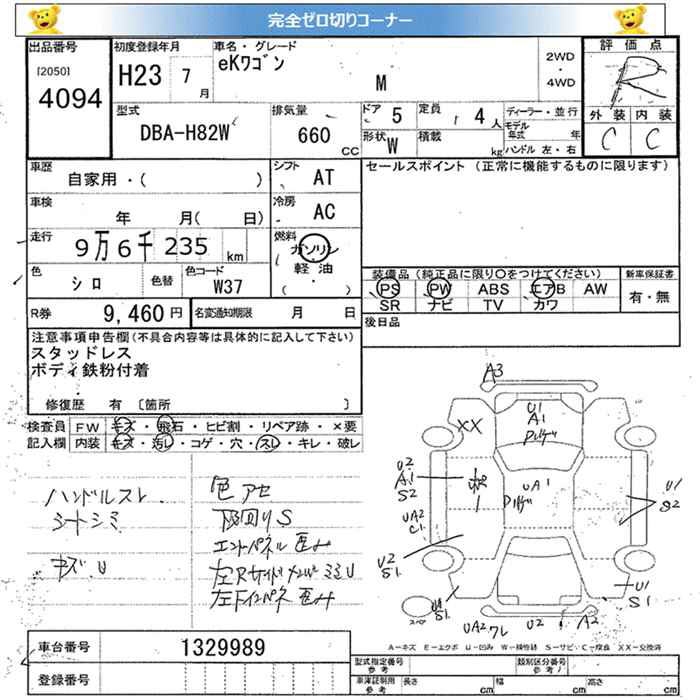 完全ゼロ切りコーナー
出品番号
[2050]
4094
初度登録年月
H23 7月
車名・グレード
eKワゴン
M
2WD
・
4WD
評価点
R
外装 内装
C C
型式
DBA-H82W
排気量
660 CC
ドア 5
定員 4人
形状 W
積載 kg
ディーラー・並行
モデル年式 年
ハンドル 左・右
車歴
自家用・( )
シフト
AT
セールスポイント (正常に機能するものに限ります)
車検
年 月( 日)
冷房
AC
走行
9万6千235 km
燃料
ガソリン
軽油
( ・ )
色
シロ
色替
色コード
W37
装備品 (純正品に限り○をつけてください)
PS PW ABS エアB AW
SR ナビ TV カワ
新車保証書
有・無
R券 9,460円
名変通知期限 月 日
後日品
注意事項申告欄(不具合内容等は具体的に記入して下さい)
スタッドレス
ボディ鉄粉付着
修復歴 有 〔箇所 〕
検査員 FW キズ・飛石・ヒビ割・リペア跡・×要
記入欄 内装 キズ・汚レ・コゲ・穴・スレ・キレ・破レ
ハンドルスレ
シートシミ
キズ U
色アセ
下回りS
エンドパネル歪み
左Rサイドメンバー ミミU
左Fインパネ歪み
A3
U1
A1
XX
U2
A1
S2
UA1
UA2
C1
U1
S2
U2
S1
U1
S1
S1
UA2 ワレ
U2
A2
スペア
A=キズ E=エクボ U=凹み W=補修跡 S=サビ C=腐食 XX=交換済
車台番号 1329989
登録番号
型式指定番号
参考
類別区分番号
参考
車庫証明用
参考
長さ cm 幅 cm 高さ cm